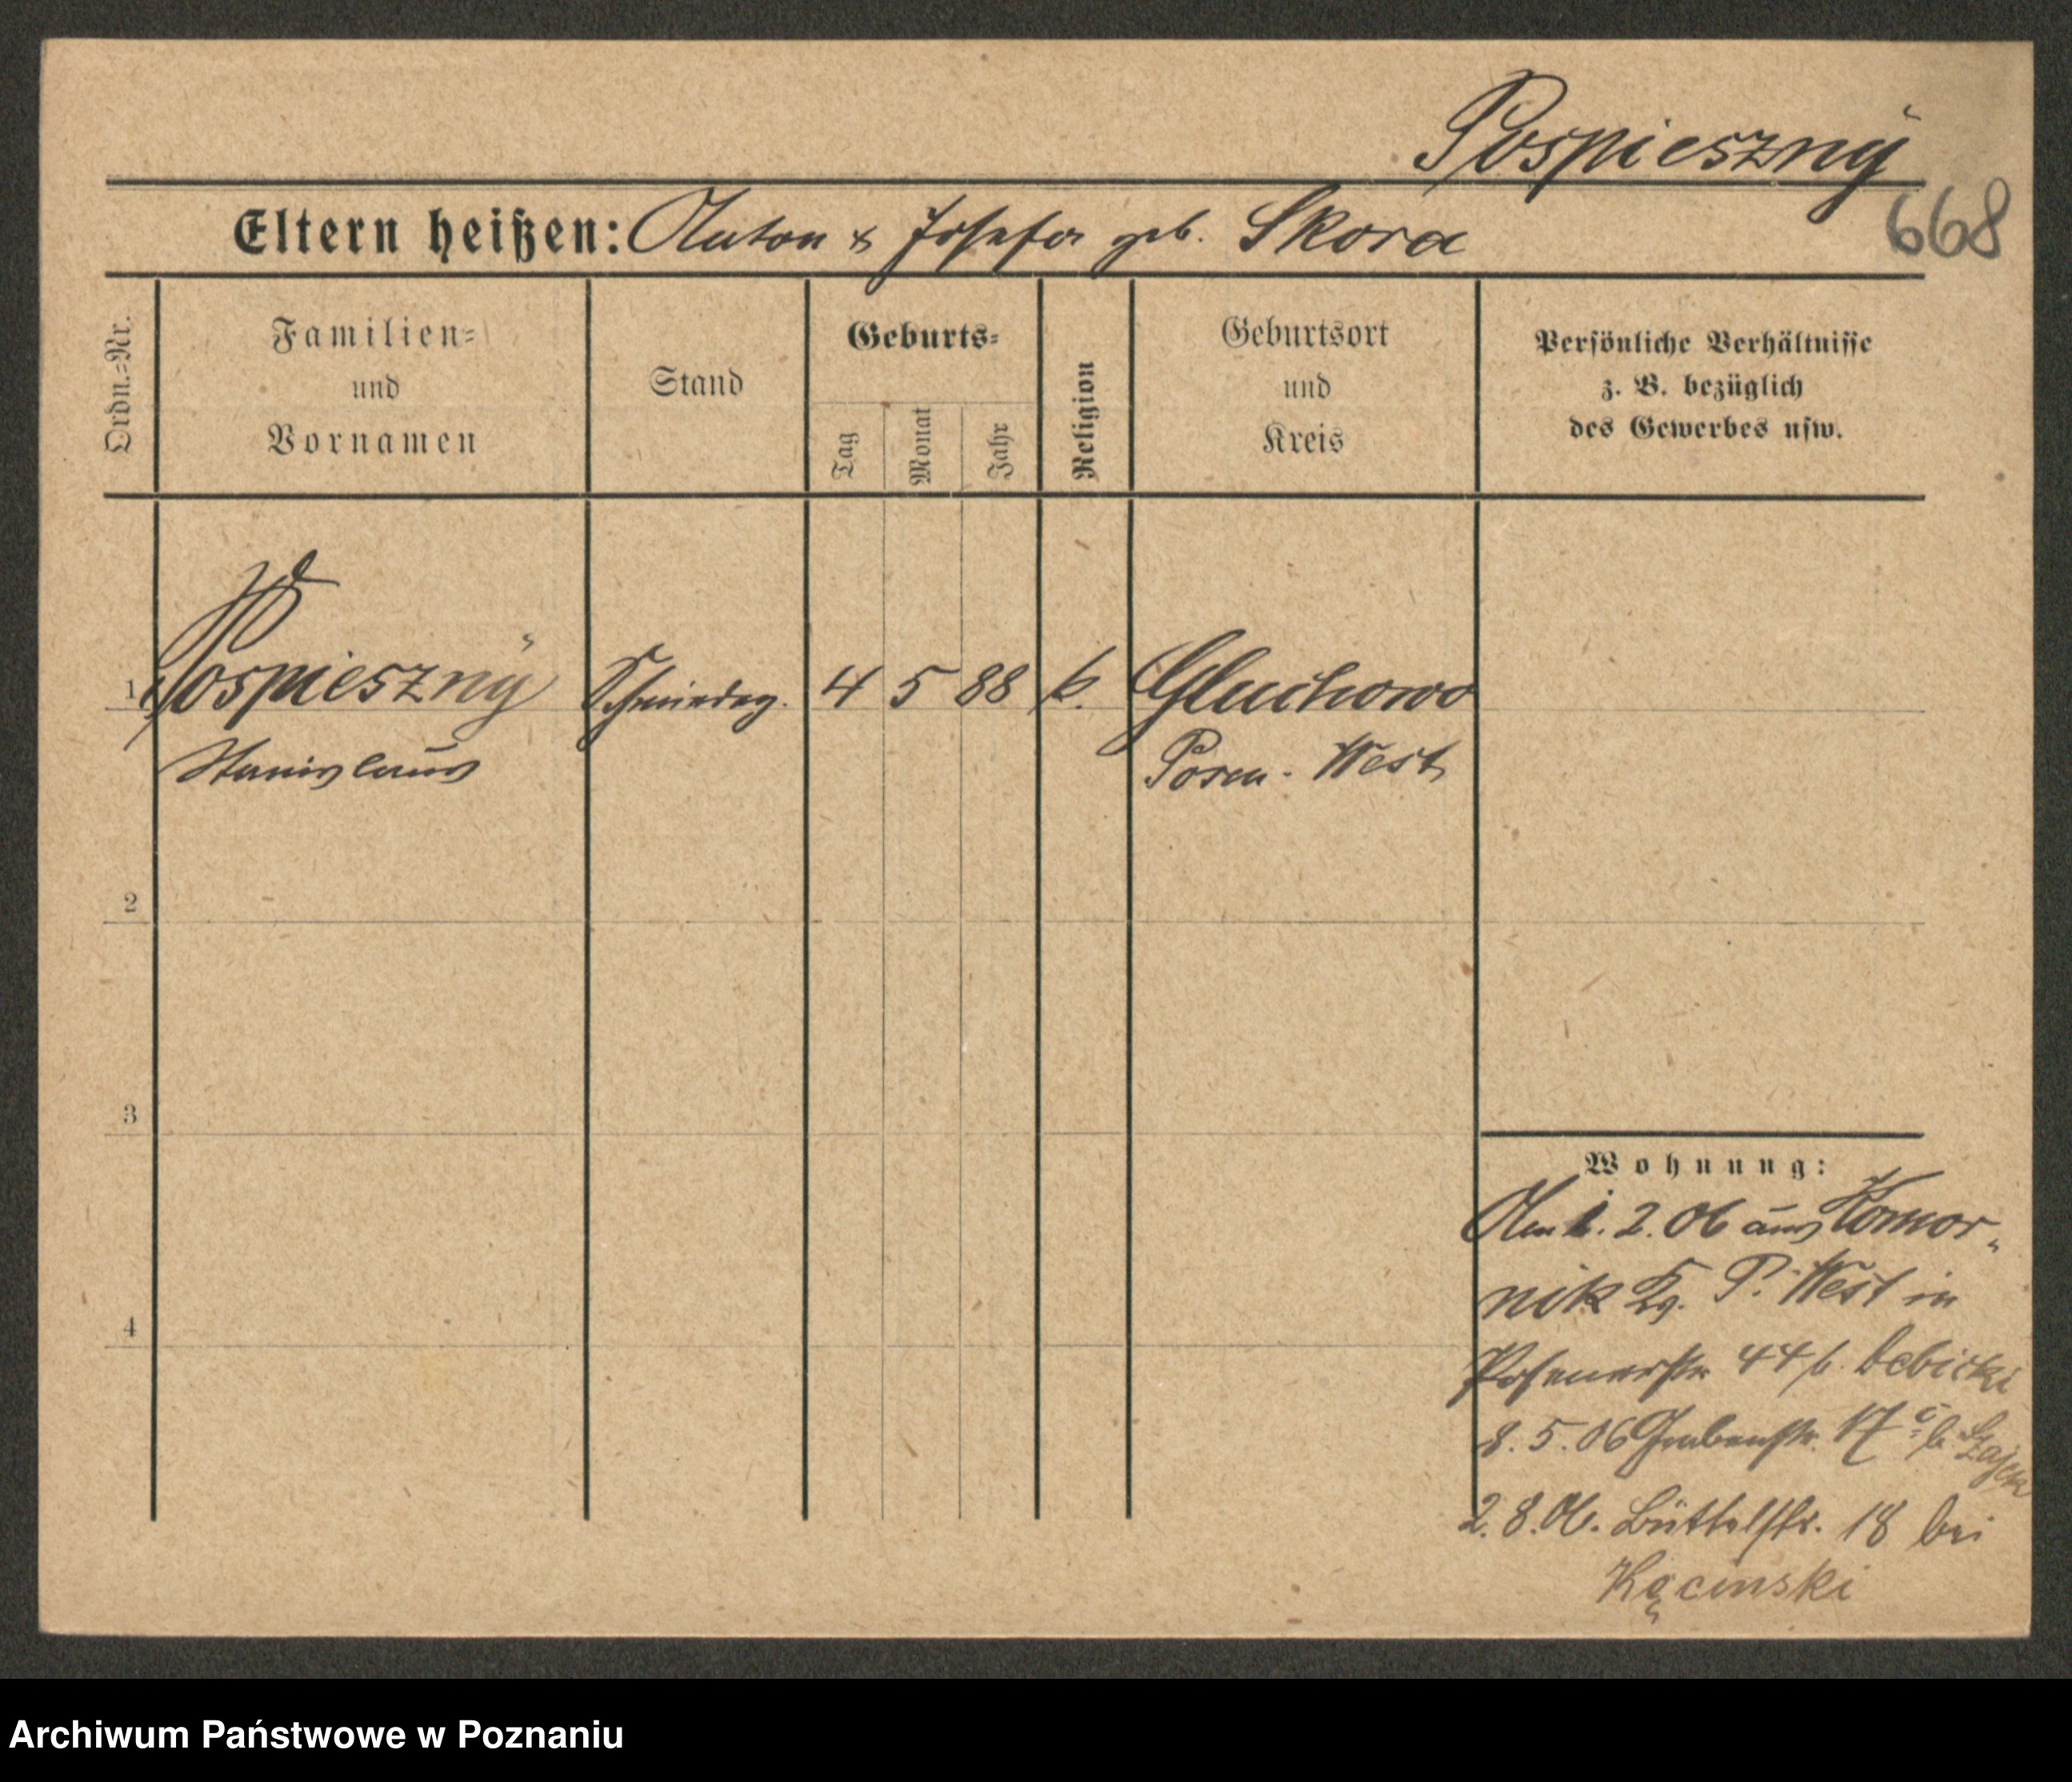 Pospieszny
668
Eltern heißen: Anton & Josefa geb. Skora
Ordn.=Nr.
Familien=
und
Vornamen
Stand
Geburts=
Tag
Monat
Jahr
Religion
Geburtsort
und
Kreis
Persönliche Verhältnisse
z. B. bezüglich
des Gewerbes usw.
1 Pospieszny Schmiedeg. 4 5 88 k. Gluchowo
Stanislaus Posen - West
2
3
4
Wohnung:
Am 1. 2. 06 aus Komor„
nik P. West in
Posenerstr 44 b. Debicki
8. 5. 06 Grabenstr. 17 b
2. 8. 06. Büttelstr. 18 bei
Kącinski
Archiwum Państwowe w Poznaniu